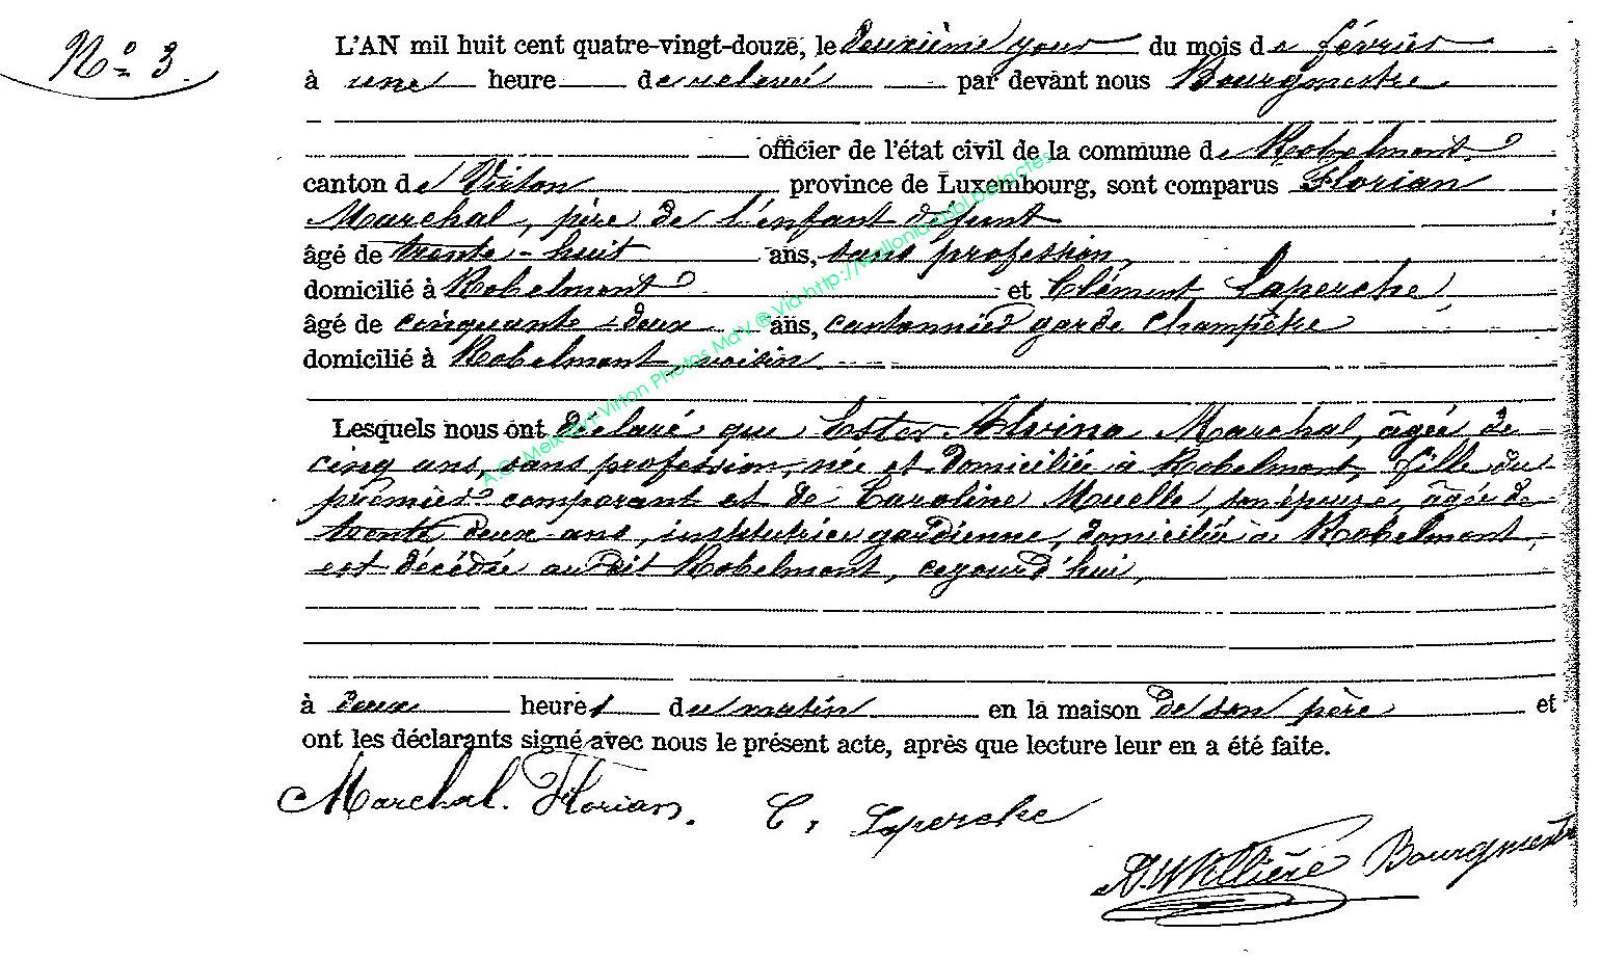 N° 3.
L'AN mil huit cent quatre-vingt-douze, le deuxième jour du mois de février
à une heure de relevé par devant nous Bourgmestre
officier de l'état civil de la commune de Robelmont
canton de Virton province de Luxembourg, sont comparus Florian
Marchal, père de l'enfant défunt
âgé de trente-huit ans, sans profession,
domicilié à Robelmont et Clément Laperche
âgé de cinquante-deux ans, cantonnier garde champêtre
domicilié à Robelmont, voisin
Lesquels nous ont déclaré que Ester Alvina Marchal, âgée de
cinq ans, sans profession, née et domiciliée à Robelmont, fille du
premier comparant et de Caroline Muelle, son épouse, âgée de
trente deux ans, institutrice gardienne, domiciliée à Robelmont,
est décédée au dit Robelmont, cejourd'hui,
à deux heures du matin en la maison de son père et
ont les déclarants signé avec nous le présent acte, après que lecture leur en a été faite.
Marchal. Florian. C. Laperche
Bourgmestre